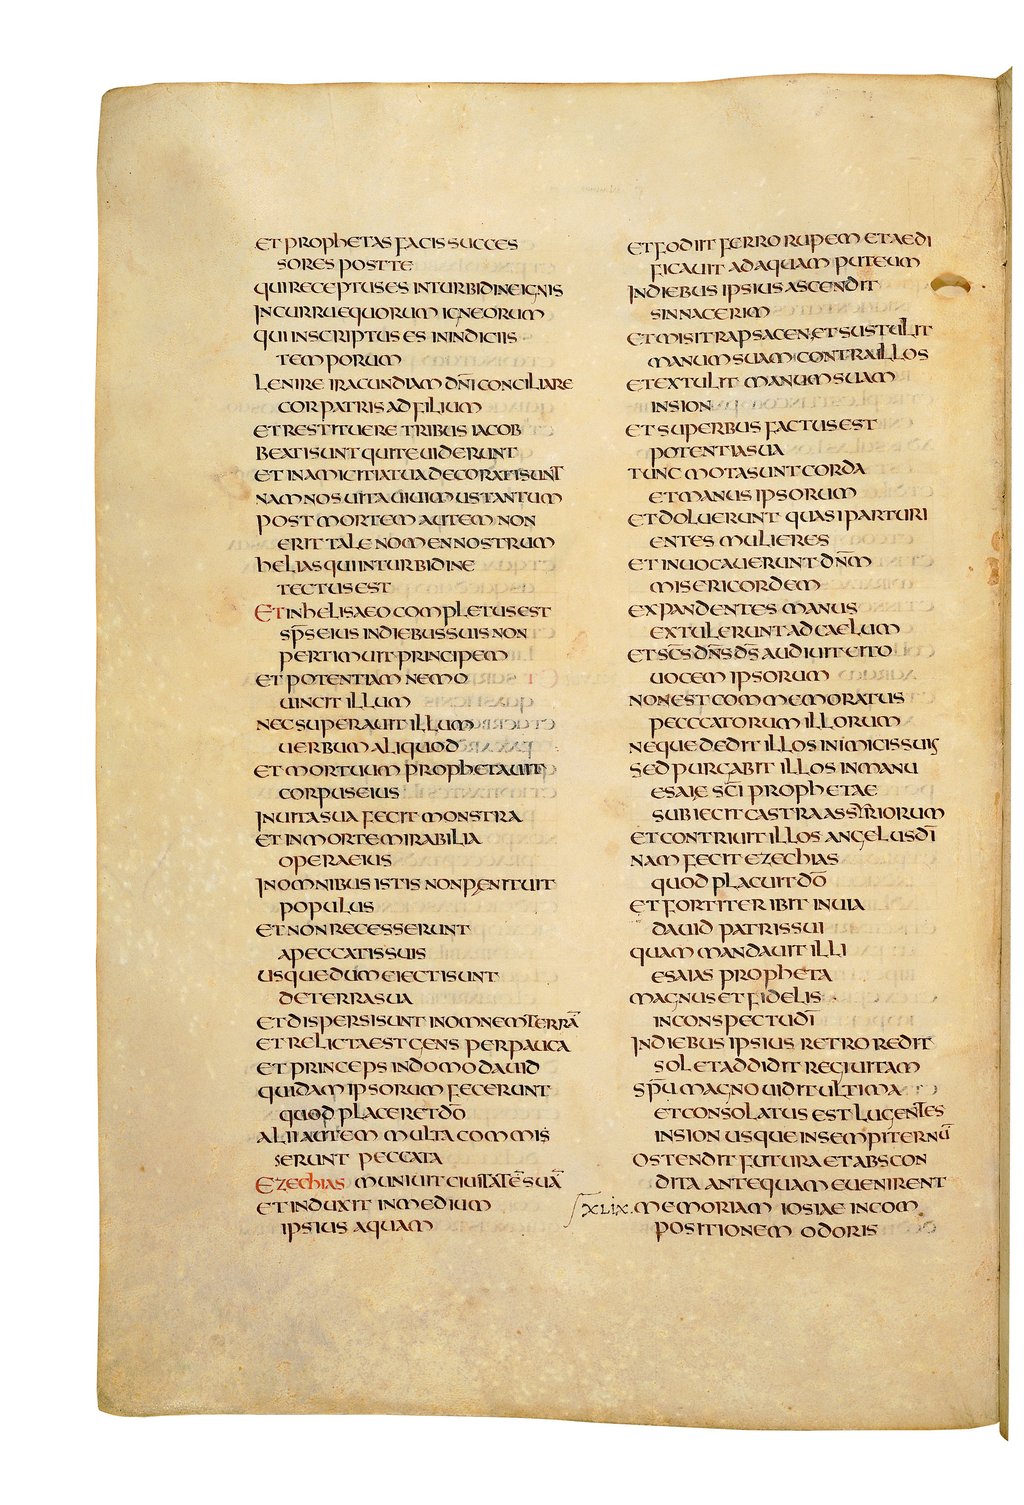 ET PROPHETAS FACIS SUCCES
SORES POST TE
QUI RECEPTUS ES IN TURBIDINE IGNIS
IN CURRU EQUORUM IGNEORUM
QUI INSCRIPTUS ES IN INDICIIS
TEMPORUM
LENIRE IRACUNDIAM DN̄I CONCILIARE
COR PATRIS AD FILIUM
ET RESTITUERE TRIBUS IACOB
BEATI SUNT QUI TE UIDERUNT
ET IN AMICITIA TUA DECORATI SUNT
NAM NOS UITA UIUIMUS TANTUM
POST MORTEM AUTEM NON
ERIT TALE NOMEN NOSTRUM
HELIAS QUI IN TURBIDINE
TECTUS EST
ET IN HELISAEO COMPLETUS EST
SP̄S EIUS IN DIEBUS SUIS NON
PERTIMUIT PRINCIPEM
ET POTENTIAM NEMO
UINCIT ILLUM
NEC SUPERAUIT ILLUM
UERBUM ALIQUOD
ET MORTUUM PROPHETAUIT
CORPUS EIUS
IN UITA SUA FECIT MONSTRA
ET IN MORTE MIRABILIA
OPERA EIUS
IN OMNIBUS ISTIS NON PENITUIT
POPULUS
ET NON RECESSERUNT
A PECCATIS SUIS
USQUE DUM EIECTI SUNT
DE TERRA SUA
ET DISPERSI SUNT IN OMNEM TERRĀ
ET RELICTA EST GENS PERPAUCA
ET PRINCEPS IN DOMO DAUID
QUIDAM IPSORUM FECERUNT
QUOD PLACERET DŌ
ALII AUTEM MULTA COMMIS
SERUNT PECCATA
EZECHIAS MUNIUIT CIUITATĒ SUĀ
ET INDUXIT IN MEDIUM
IPSIUS AQUAM
ET FODIIT FERRO RUPEM ET AEDI
FICAUIT AD AQUAM PUTEUM
IN DIEBUS IPSIUS ASCENDIT
SINNACERIM
ET MISIT RAPSACEN ET SUSTULIT
MANUM SUAM CONTRA ILLOS
ET EXTULIT MANUM SUAM
IN SION
ET SUPERBUS FACTUS EST
POTENTIA SUA
TUNC MOTA SUNT CORDA
ET MANUS IPSORUM
ET DOLUERUNT QUASI PARTURI
ENTES MULIERES
ET INUOCAUERUNT DN̄M
MISERICORDEM
EXPANDENTES MANUS
EXTULERUNT AD CAELUM
ET SC̄S DN̄S DS̄ AUDIUIT CITO
UOCEM IPSORUM
NON EST COMMEMORATUS
PECCCATORUM ILLORUM
NEQUE DEDIT ILLOS INIMICIS SUIS
SED PURGABIT ILLOS IN MANU
ESAIE SC̄I PROPHETAE
SUBIECIT CASTRA ASSYRIORUM
ET CONTRIUIT ILLOS ANGELUS DĪ
NAM FECIT EZECHIAS
QUOD PLACUIT DŌ
ET FORTITER IBIT IN UIA
DAUID PATRIS SUI
QUAM MANDAUIT ILLI
ESAIAS PROPHETA
MAGNUS ET FIDELIS
IN CONSPECTU DĪ
IN DIEBUS IPSIUS RETRO REDIT
SOL ET ADDIDIT REGI UITAM
SP̄U MAGNO UIDIT ULTIMA
ET CONSOLATUS EST LUGENTES
IN SION USQUE IN SEMPITERNŪ
OSTENDIT FUTURA ET ABSCON
DITA ANTEQUAM EUENIRENT
XLIX. MEMORIAM IOSIAE IN COM
POSITIONEM ODORIS